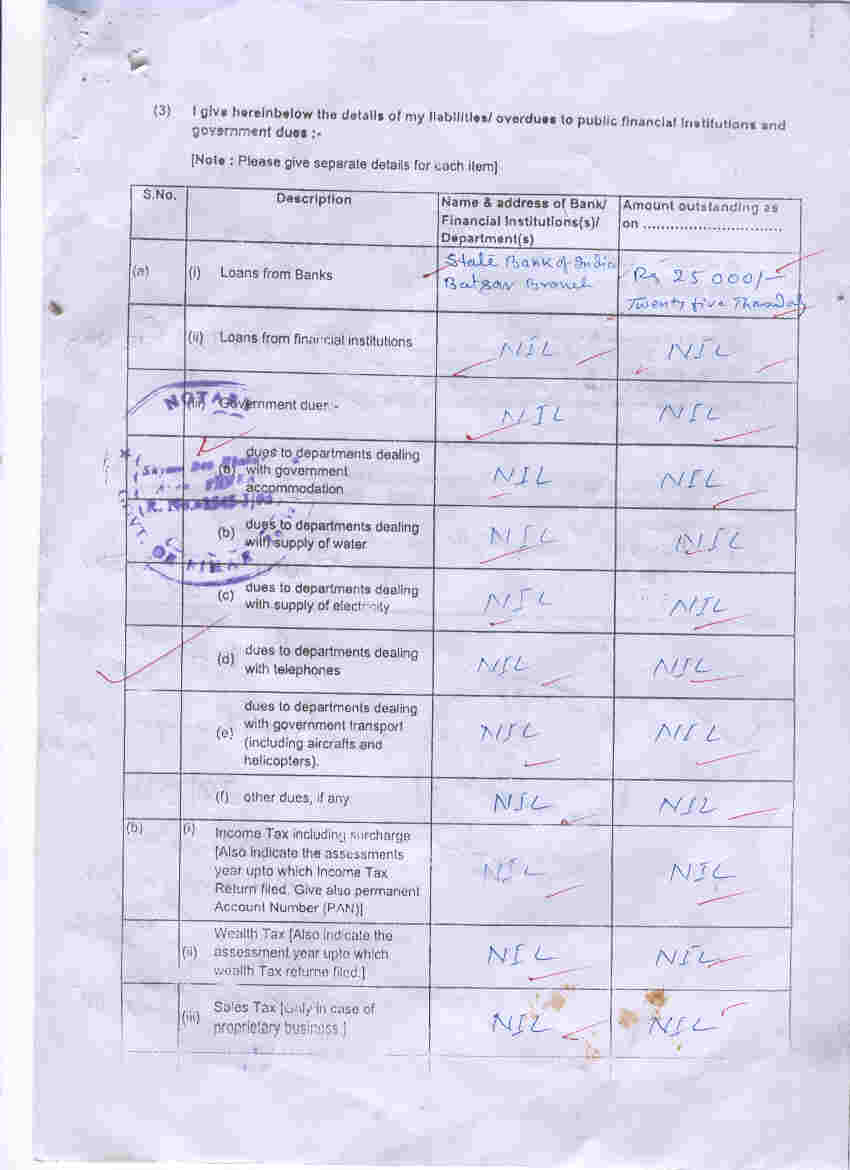 (3) I give hereinbelow the details of my liabilities/ overdues to public financial institutions and
government dues :-
[Note : Please give separate details for each item]
S.No. Description Name & address of Bank/ Amount outstanding as
Financial Institutions(s)/ on ..............................
Department(s)
(a) (i) Loans from Banks State Bank of India Rs 25000/-
Branch Twenty five Thousand
(ii) Loans from financial institutions NIL NIL
(iii) Government dues :- NIL NIL
NOTARY
(a) dues to departments dealing
with government NIL NIL
accommodation
R. No.
(b) dues to departments dealing NIL NIL
with supply of water
GOVT. OF BIHAR
(c) dues to departments dealing NIL NIL
with supply of electricity
(d) dues to departments dealing NIL NIL
with telephones
(e) dues to departments dealing
with government transport NIL NIL
(including aircrafts and
helicopters).
(f) other dues, if any NIL NIL
(b) (i) Income Tax including surcharge
[Also indicate the assessments
year upto which Income Tax NIL NIL
Return filed. Give also permanent
Account Number (PAN)]
Wealth Tax [Also indicate the
(ii) assessment year upto which NIL NIL
wealth Tax returne filed.]
(iii) Sales Tax [only in case of NIL NIL
proprietary business.]